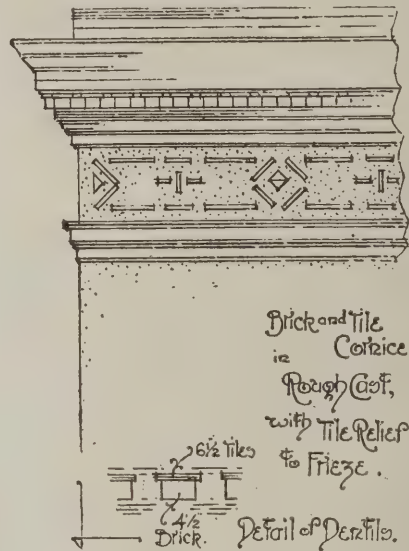 Brick and Tile
Cornice
in
Rough Cast,
with Tile Relief
to Frieze.
6½ Tiles
4½
Brick.
Detail of Dentils.